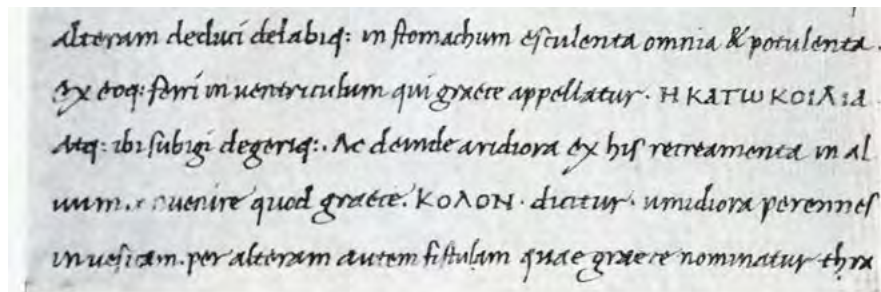 alteram deduci delabiq: in stomachum esculenta omnia & potulenta.
ex eoq: ferri in uentriculum qui graece appellatur. Η ΚΑΤω ΚΟΙΛΙΑ
Atq: ibi subigi degeriq:. Ac deinde aridiora ex his recreamenta in al
uum. uenire quod graece. ΚΟΛΟΝ. dicitur. umidiora perennes
in uesicam. per alteram autem fistulam quae graece nominatur thra